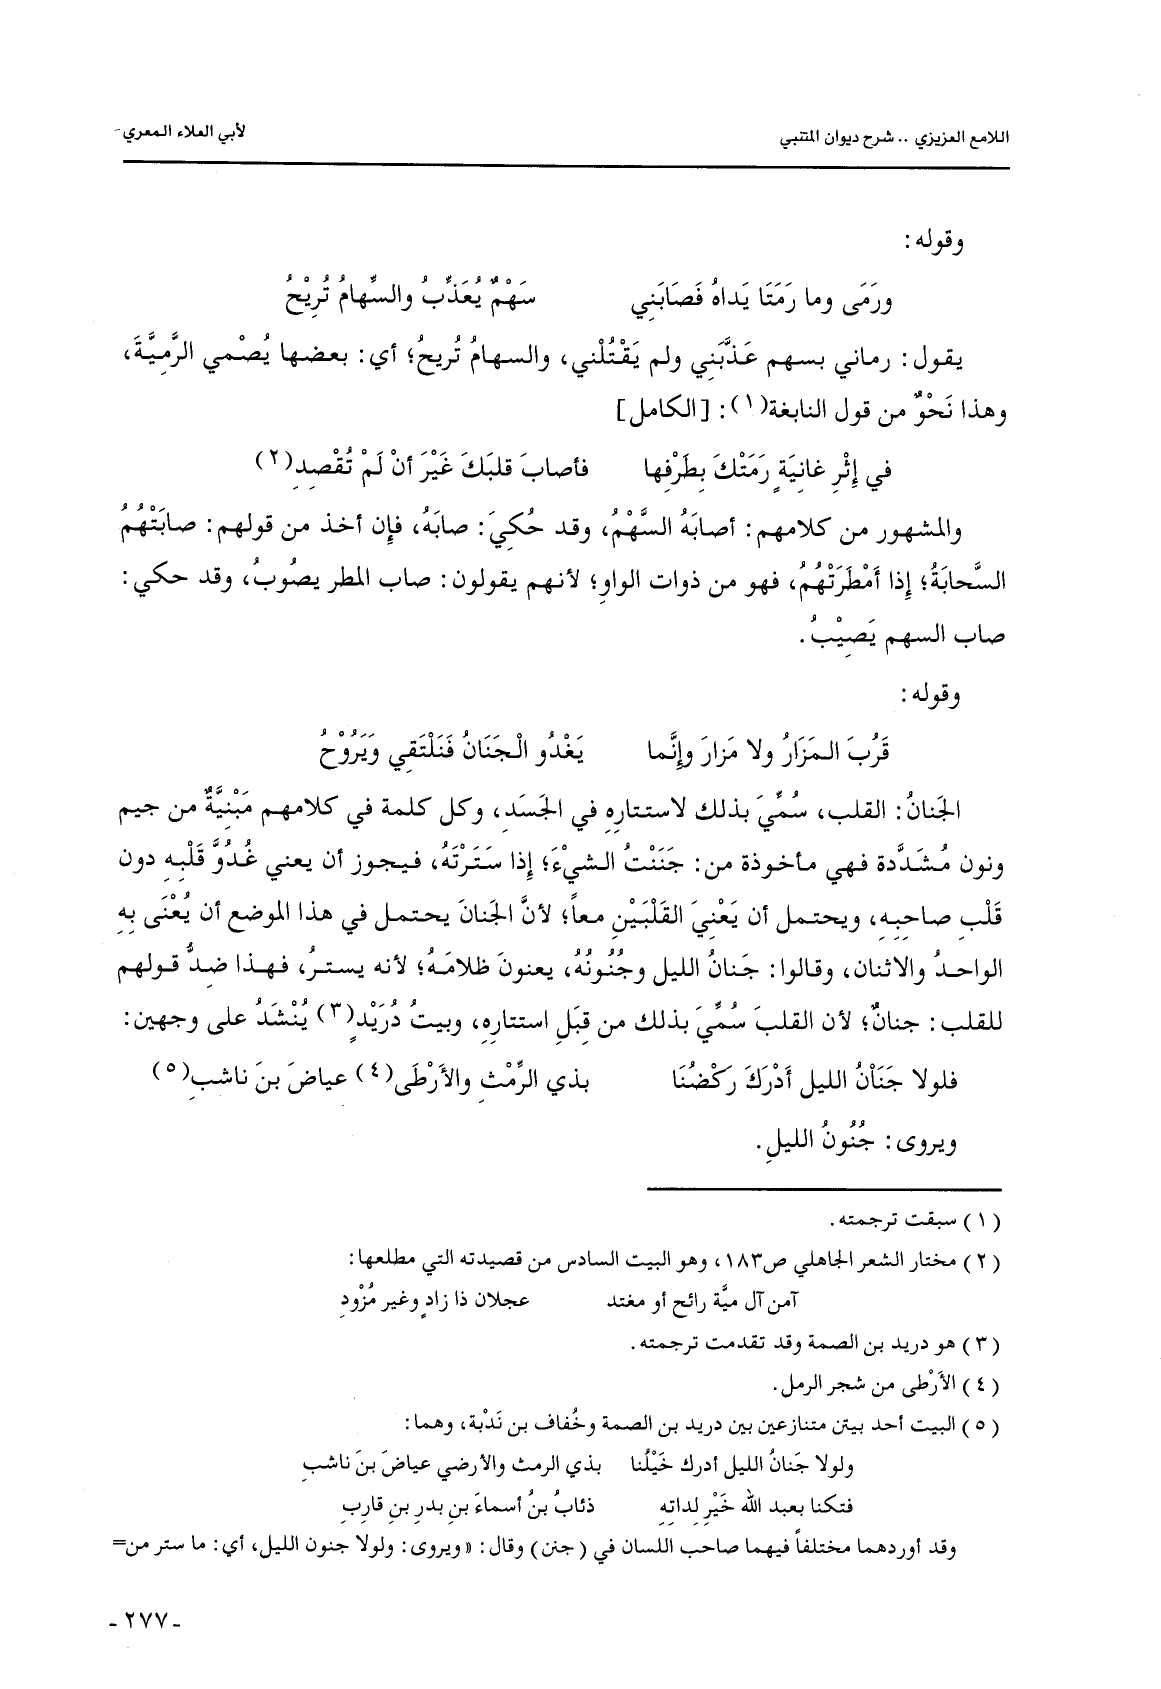 اللامع العزيزي .. شرح ديوان المتنبي لأبي العلاء المعري
وقوله:
ورَمَى وما رَمَتَا يَداهُ فَصَابَنِي سَهْمٌ يُعَذِّبُ والسِّهامُ تُرِيْحُ
يقول: رماني بسهم عَذَّبَنِي ولم يَقْتُلْني، والسهامُ تُريحُ؛ أي: بعضها يُصْمي الرَّمِيَّةَ،
وهذا نَحْوٌ من قول النابغة(١): [الكامل]
في إِثْرِ غانيَةٍ رَمَتْكَ بِطَرْفِها فأصابَ قلبَكَ غَيْرَ أنْ لَمْ تُقْصِدِ(٢)
والمشهور من كلامهم: أصابَهُ السَّهْمُ، وقد حُكِيَ: صابَهُ، فإن أخذ من قولهم: صابَتْهُمُ
السَّحابَةُ؛ إذا أَمْطَرَتْهُمُ، فهو من ذوات الواوِ؛ لأنهم يقولون: صاب المطر يصُوبُ، وقد حكي:
صاب السهم يَصِيْبُ.
وقوله:
قَرُبَ المَزَارُ ولا مَزارَ وإِنَّما يَغْدُو الْجَنَانُ فَنَلْتَقِي وَيَرُوْحُ
الجَنانُ: القلب، سُمِّيَ بذلك لاستتارِهِ في الجَسَدِ، وكل كلمة في كلامهم مَبْنِيَّةٌ من جيم
ونون مُشَدَّدة فهي مأخوذة من: جَنَنْتُ الشيْءَ؛ إذا سَتَرْتَهُ، فيجوز أن يعني غُدُوَّ قَلْبِهِ دون
قَلْبِ صاحِبِهِ، ويحتمل أن يَعْنِيَ القَلْبَيْنِ معاً؛ لأنَّ الجَنانَ يحتمل في هذا الموضع أن يُعْنَى بِهِ
الواحدُ والاثنان، وقالوا: جَنانُ الليل وجُنُونُهُ، يعنونَ ظلامَهُ؛ لأنه يسترُ، فهذا ضِدُّ قولهم
للقلب: جنانٌ؛ لأن القلبَ سُمِّيَ بذلك من قِبَلِ استتارِهِ، وبيتُ دُرَيْدٍ(٣) يُنْشَدُ على وجهين:
فلولا جَنَاْنُ الليل أَدْرَكَ رَكْضُنَا بذي الرِّمْثِ والأَرْطَى(٤) عياضَ بنَ ناشبِ(٥)
ويروى: جُنُونُ الليلِ.
(١) سبقت ترجمته.
(٢) مختار الشعر الجاهلي ص١٨٣، وهو البيت السادس من قصيدته التي مطلعها:
آمن آل ميَّة رائح أو مغتد عجلان ذا زادٍ وغير مُزْودِ
(٣) هو دريد بن الصمة وقد تقدمت ترجمته.
(٤) الأَرْطى من شجر الرمل.
(٥) البيت أحد بيتن متنازعين بين دريد بن الصمة وخُفاف بن نَدْبة، وهما:
ولولا جَنانُ الليل أدرك خَيْلُنا بذي الرمث والأرضي عياضَ بنَ ناشبِ
فتكنا بعبد الله خَيْرِ لداتِهِ ذئابُ بنُ أسماءَ بنِ بدرِ بنِ قاربِ
وقد أوردهما مختلفاً فيهما صاحب اللسان في (جنن) وقال: «ويروى: ولولا جنون الليل، أي: ما ستر من=
- ٢٧٧ -